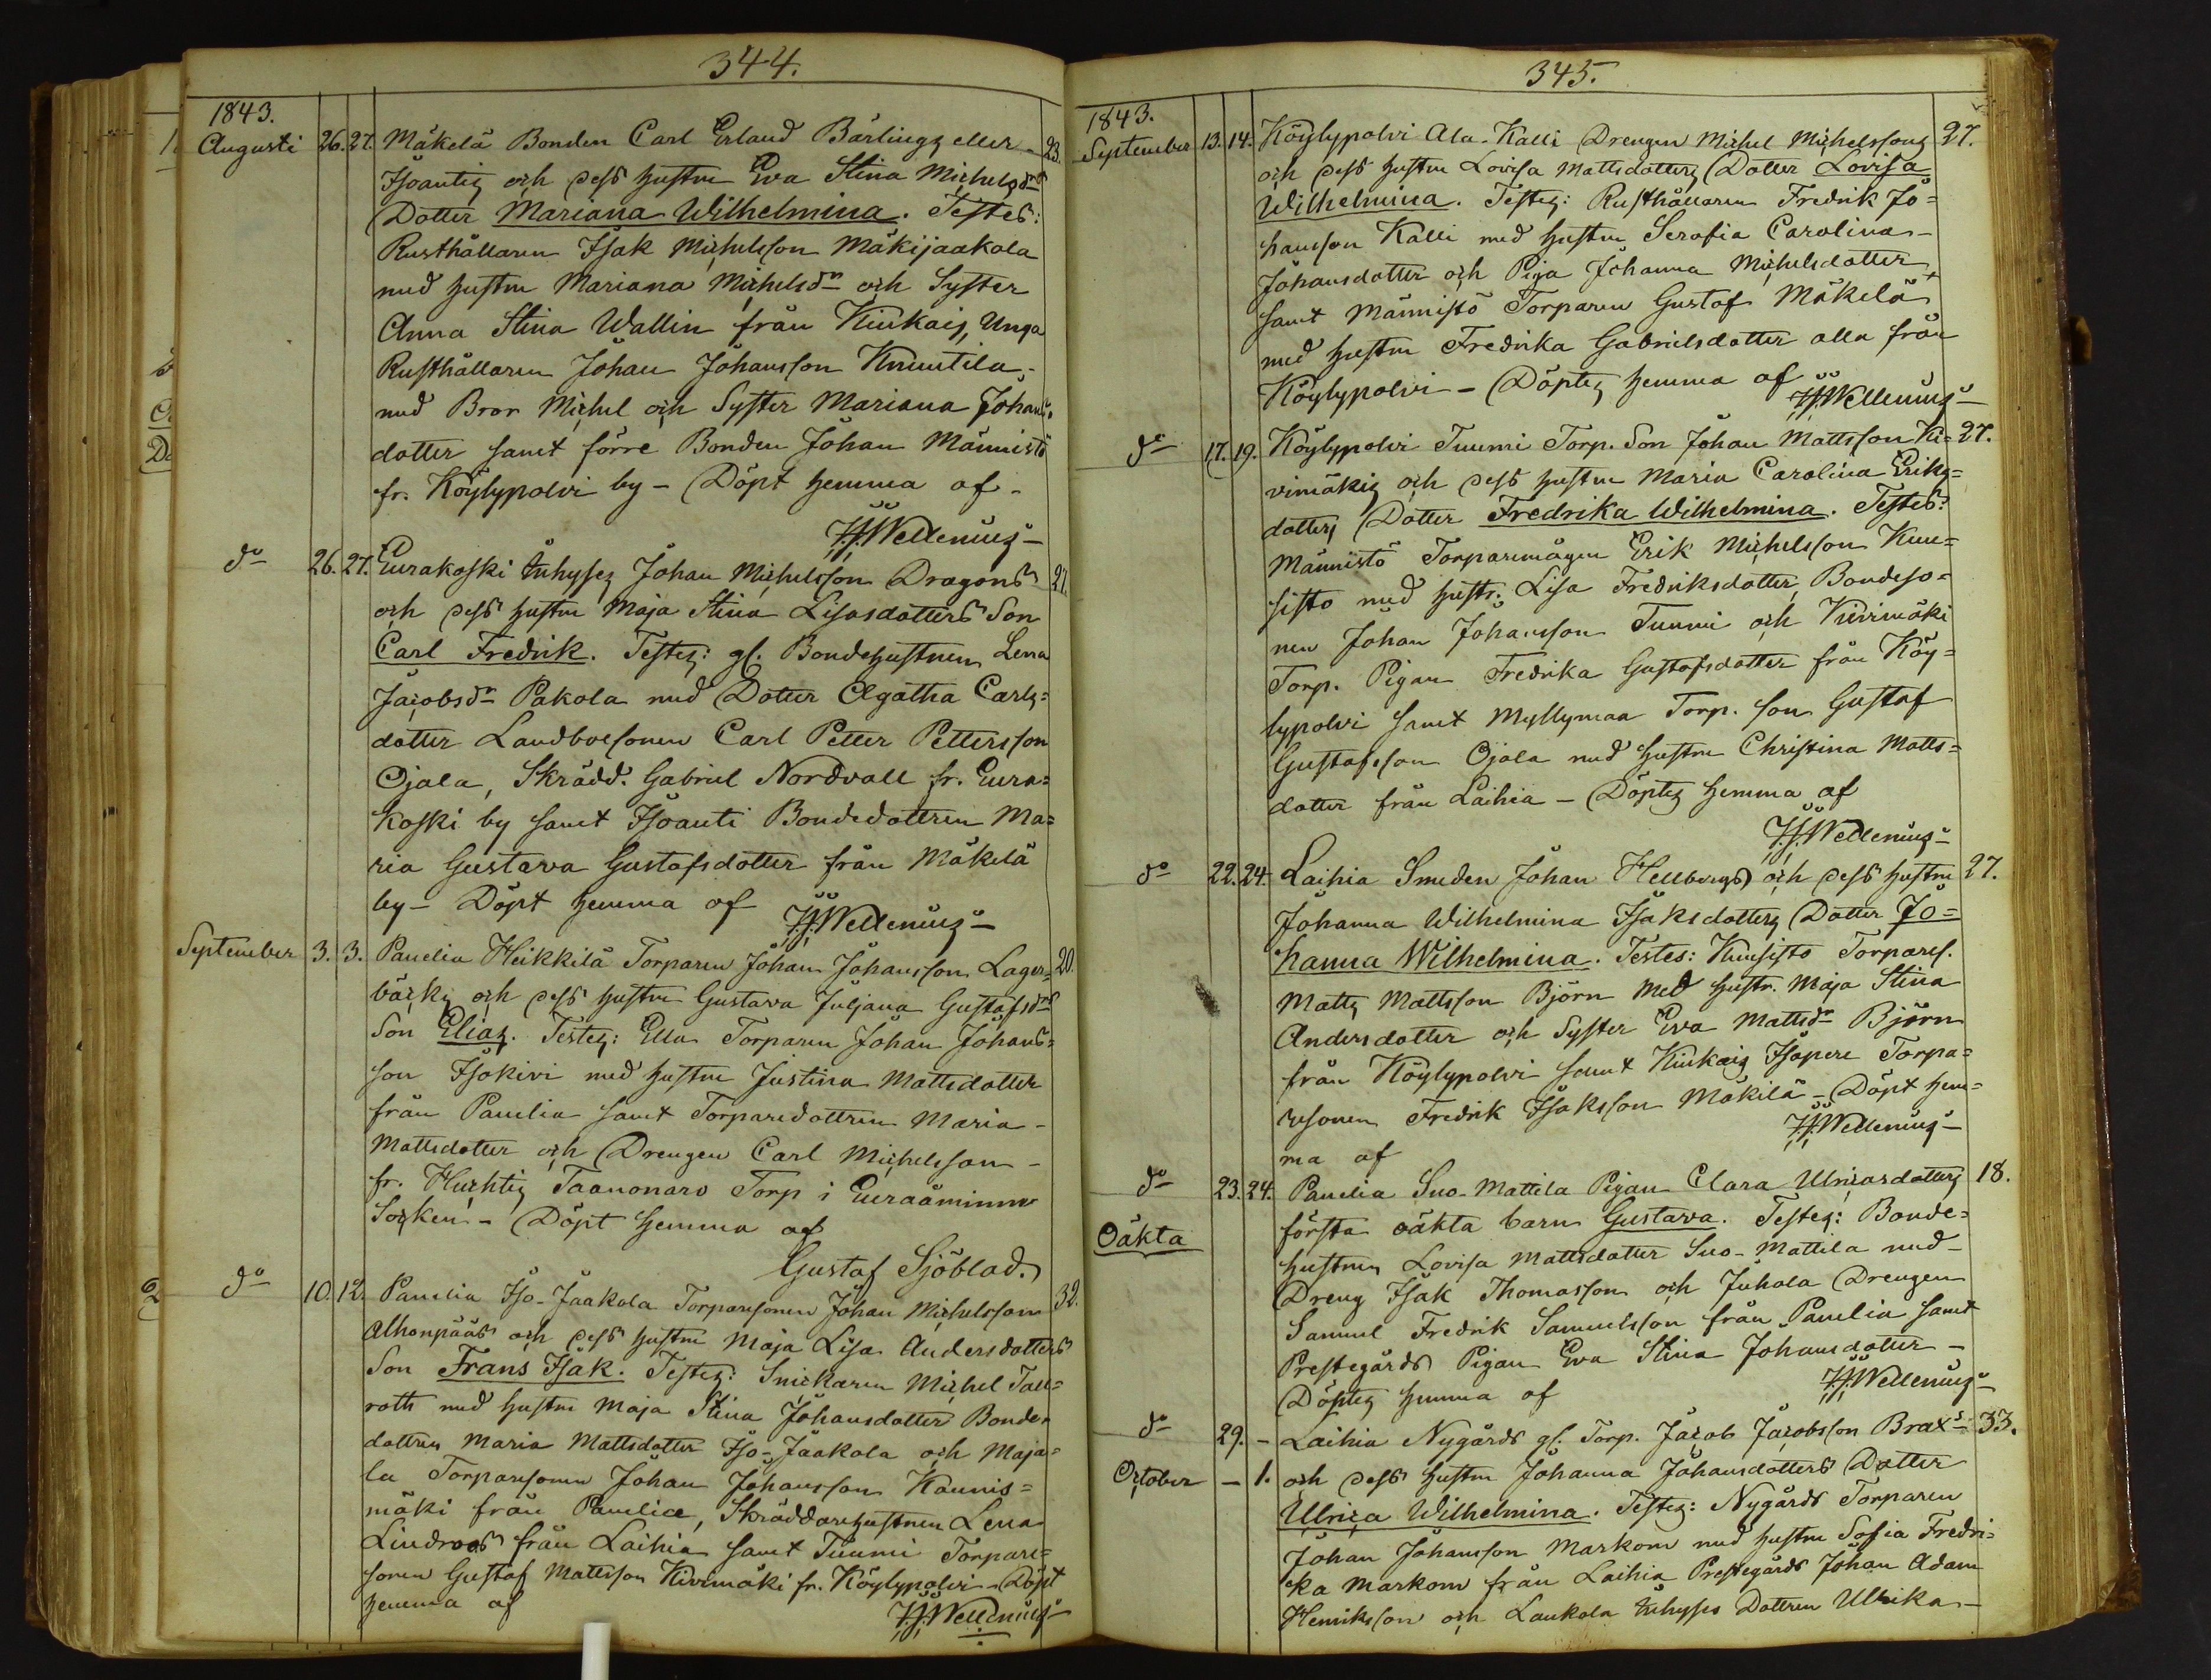 344.
1843.
Augusti 26. 27. Mäkelä Bonden Carl Erland Bärlings eller 23.
Isoantis och dess hustru Eva Stina Michelsdrs
Dotter Mariana Wilhelmina. Testes:
Rusthållaren Isak Michelsson Mäkijaakola
med hustru Mariana Michelsdr och Syster
Anna Stina Wallin från Kiukais, Unga
Rusthållaren Johan Johansson Knuutila
med Bror Michel och Syster Mariana Johans-
dotter samt förre Bonden Johan Männistö
fr. Köylypolvi by - Döpt hemma af
H.J. Wellenius
do 26. 27. Eurakoski Inhyses Johan Michelsson Dragons 21.
och dess hustru Maja Stina Lisasdotters Son
Carl Fredrik. Testes: gl. Bondehustrun Lena
Jacobsdr Pakola med Dotter Agatha Carls=
dotter Landboesonen Carl Petter Pettersson
Ojala, Skrädd. Gabriel Nordvall fr. Eura=
koski by samt Isoanti Bondedottren Ma=
ria Gustava Gustafsdotter från Mäkelä
by - Döpt hemma af H.J. Wellenius
September 3. 3. Panelia Heikkilä Torparen Johan Johansson Lager= 20.
bäcks och dess hustru Gustava Juljana Gustafsdrs
Son Elias. Testes: Ella Torparen Johan Johans=
son Isokivi med hustru Justina Mattsdotter
från Panelia samt Torparedottren Maria
Mattsdotter och Drengen Carl Michelsson
fr. Huchtis Taanonaro Torp i Euraåminne
Socken - Döpt hemma af
Gustaf Sjöblad.
do 10. 12. Panelia Iso-Jaakola Torparesonen Johan Michelsson 32.
Alhonpääs och dess hustru Maja Lisa Andersdotters
Son Frans Isak. Testes: Snickaren Michel Tall=
roth med hustru Maja Stina Johansdotter Bonde-
dottren Maria Mattsdotter Iso-Jaakola och Maja=
la Torparesonen Johan Johansson Kaunis=
mäki från Panelia, Skräddarehustrun Lena
Lindroos från Laihia samt Tuumi Torpare=
sonen Gustaf Mattsson Kivimäki fr. Köylypolvi - Döpt
hemma af H.J. Wellenius
345.
1843.
September 13. 14. Köylypolvi Ala-Kalli Drengen Michel Michelssons 27.
och dess hustru Lovisa Mattsdotters Dotter Lovisa
Wilhelmina. Testes: Rusthållaren Fredrik Jo=
hansson Kalli med hustru Serafia Carolina
Johansdotter och Piga Johanna Michelsdotter
samt Männistö Torparen Gustaf Mäkelä
med hustru Fredrika Gabrielsdotter alla från
Köylypolvi - Döptes hemma af H.J. Wellenius
do 17. 19. Köylypolvi Tuumi Torp. Son Johan Mattsson Ki= 27.
vimäkis och dess hustru Maria Carolina Eriks=
dotters Dotter Fredrika Wilhelmina. Testes:
Männistö Torparemågen Erik Michelsson Kuu=
sisto med hustr. Lisa Fredriksdotter, Bondeso=
nen Johan Johansson Tuumi och Kivimäki
Torp. Pigan Fredrika Gustafsdotter från Köy=
lypolvi samt Myllymaa Torp. son Gustaf
Gustafsson Ojala med hustru Christina Matts=
dotter från Laihia - Döptes hemma af
H.J. Wellenius
do 22. 24. Laihia Smeden Johan Hellbergs och dess hustru 27.
Johanna Wilhelmina Isaksdotters Dotter Jo=
hanna Wilhelmina. Testes: Kuusisto Torpares.
Matts Mattsson Björn med hustr. Maja Stina
Andersdotter och Syster Eva Mattsdr Björn
från Köylypolvi samt Kiukais Isopere Torpa=
resonen Fredrik Isaksson Mäkilä - Döpt hem=
ma af H.J. Wellenius
do 23. 24. Panelia Suo-Mattila Pigan Clara Ulricasdotters 18.
Oäkta första oäkta barn Gustava. Testes: Bonde=
hustrun Lovisa Mattsdotter Suo-Mattila med
Dreng Isak Thomasson och Juhala Drengen
Samuel Fredrik Samuelsson från Panelia samt
Prestegårds Pigan Eva Stina Johansdotter -
Döptes hemma af H.J. Wellenius
do 29. - Laihia Nygårds gl. Torp. Jacob Jacobsson Brax's 33.
October - 1. och dess hustru Johanna Johansdotters Dotter
Ulrica Wilhelmina. Testes: Nygårds Torparen
Johan Johansson Markom med hustru Sofia Fredri=
ka Markom från Laihia Prestegårds Johan Adam
Henriksson och Laukola Inhyses Dottren Ulrika